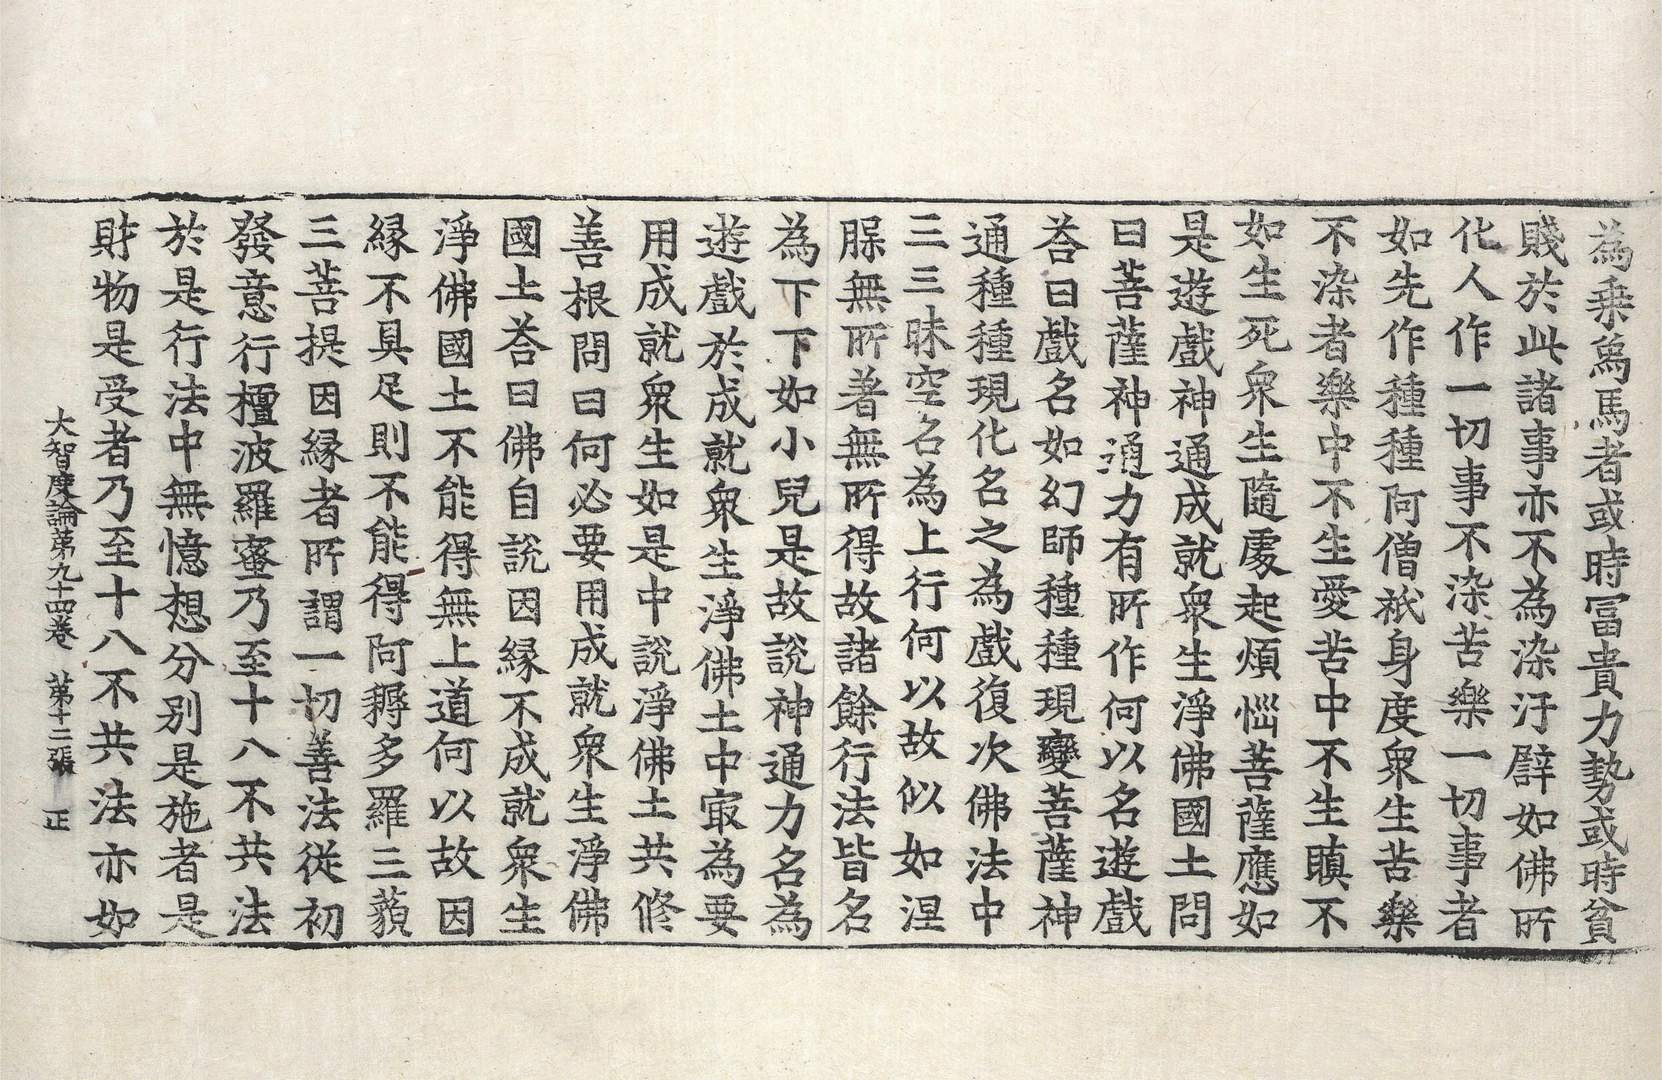 為乗爲馬者或時冨貴力勢或時貧
賤於此諸事亦不為染汙譬如佛所
化人作一切事不染苦樂一切事者
如先作種種阿僧祇身度衆生苦樂
不染者樂中不生愛苦中不生瞋不
如生死衆生隨處起煩惱菩薩應如
是遊戲神通成就衆生淨佛國土問
曰菩薩神通力有所作何以名遊戲
荅曰戲名如幻師種種現變菩薩神
通種種現化名之為戲復次佛法中
三三昧空名為上行何以故似如涅
脲無所著無所得故諸餘行法皆名
為下下如小兒是故說神通力名為
遊戲於成就衆生淨佛土中㝡為要
用成就衆生如是中說淨佛土共修
善根問曰何必要用成就衆生淨佛
國土荅曰佛自說因縁不成就衆生
淨佛國土不能得無上道何以故因
縁不具足則不能得阿耨多羅三藐
三菩提因縁者所謂一切善法從初
發意行檀波羅蜜乃至十八不共法
於是行法中無憶想分別是施者是
財物是受者乃至十八不共法亦如
大智度論第九十四卷 第十二張 正